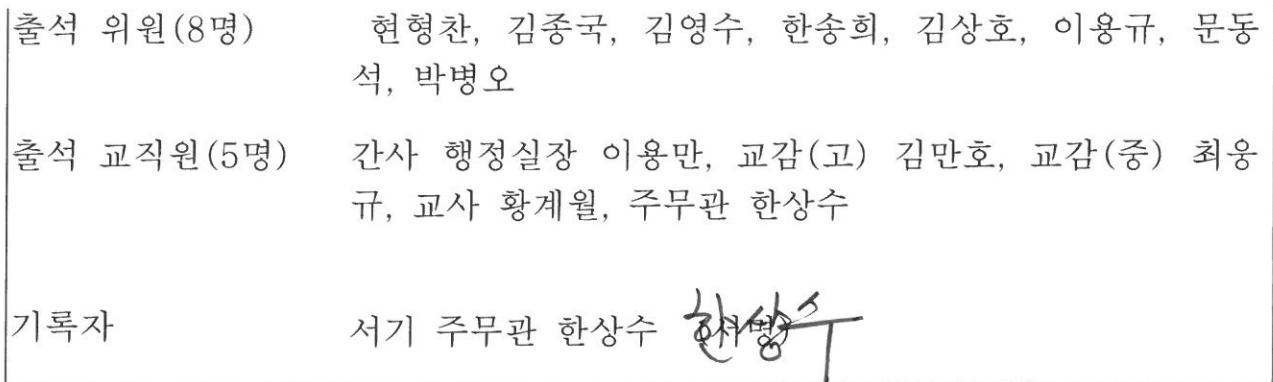 출석 위원(8명) 현형찬, 김종국, 김영수, 한송희, 김상호, 이용규, 문동
석, 박병오
출석 교직원(5명) 간사 행정실장 이용만, 교감(고) 김만호, 교감(중) 최웅
규, 교사 황계월, 주무관 한상수
기록자 서기 주무관 한상수 (서명) 한상수